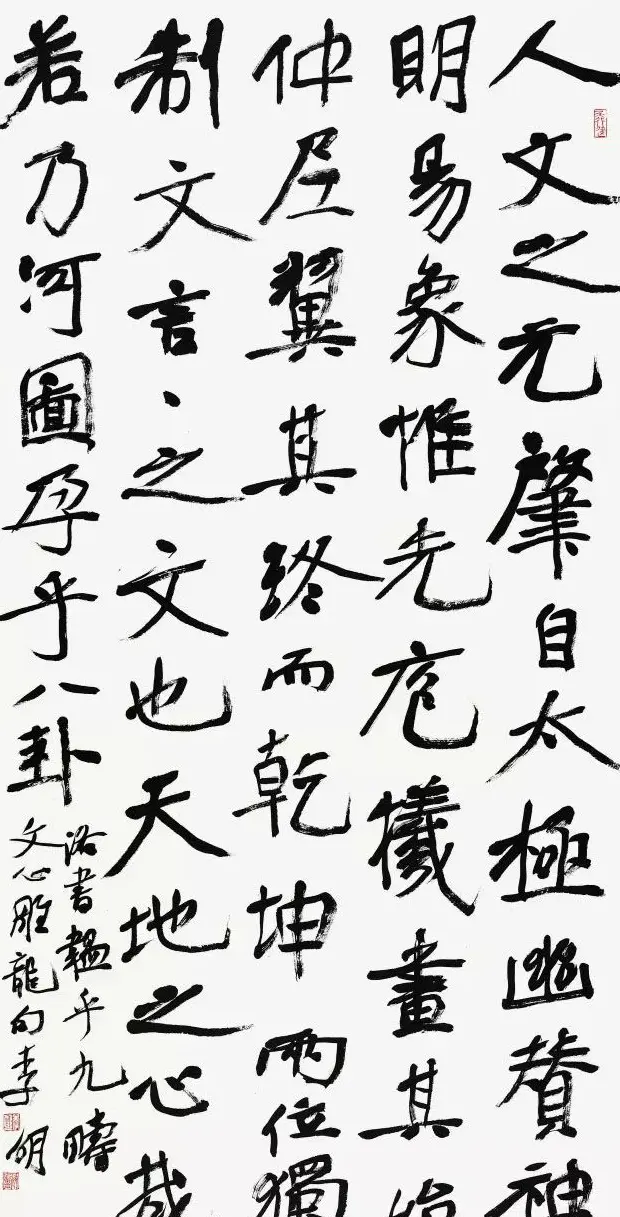 人文之元肇自太極幽贊神
明易象惟先庖犧畫其始
仲尼翼其終而乾坤兩位獨
制文言、之文也天地之心哉
若乃河圖孕乎八卦
洛書韞乎九疇
文心雕龍句李明